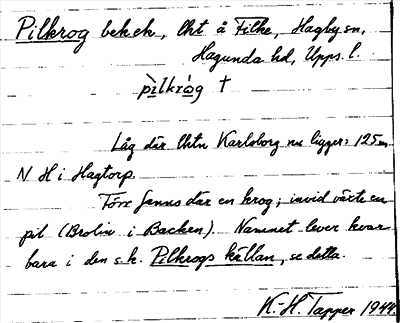 Pilkrog bek.ck, lht å Filke, Hagby sn,
Hagunda hd, Upps. l.
pìlkrò̀g †
Låg där lhtn Karlsborg nu ligger: 125 m
N H i Hagtorp.
Förr fanns där en krog; invid växte en
pil (Brolin i Backen). Namnet lever kvar
bara i den s.k. Pilkrogs källan, se detta.
K.-H. Tapper 1944.